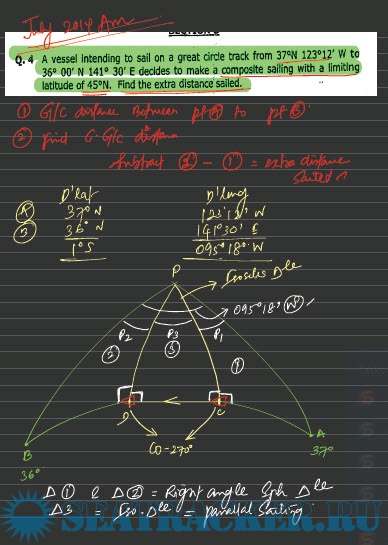 July 2014 Am
Q. 4 A vessel intending to sail on a great circle track from 37°N 123°12' W to
36° 00' N 141° 30' E decides to make a composite sailing with a limiting
latitude of 45°N. Find the extra distance sailed.
① G/C distance Between pt Ⓐ to pt Ⓑ
② find C-G/C distance
Subtract ② - ① = extra distance
Sailed
D'lat D'long
Ⓐ 37° N 123°12' W
Ⓑ 36° N 141°30' E
1° S 095°18' W
P
Isosceles Dle
095°18' W
P2 P3 P1
② ③ ①
D C
A
37°
B
36°
CO-270°
Δ① & Δ② = Right angle Sph Dle
Δ3 = Iso. Dle = parallel Sailing
SEATRACKER.RU